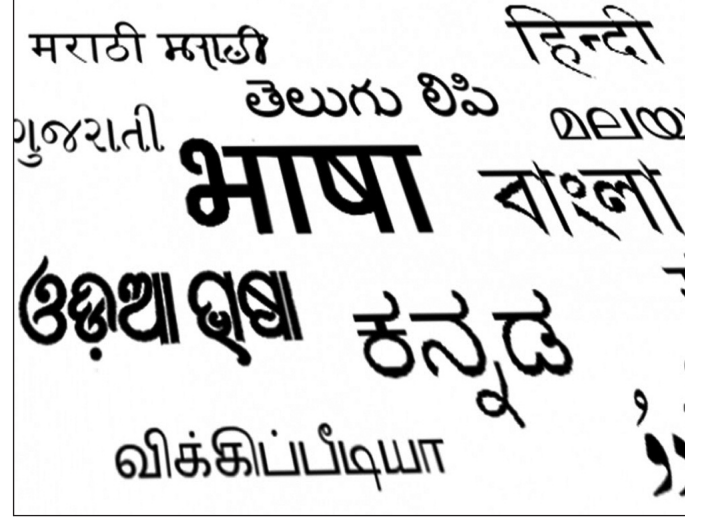 मराठी 𑘦𑘨𑘰𑘙𑘲 हिन्दी
తెలుగు లిపి
ગુજરાતી
भाषा বাংলা
ଓଡ଼ିଆ ଭାଷା
ಕನ್ನಡ
விக்கிப்பீடியா